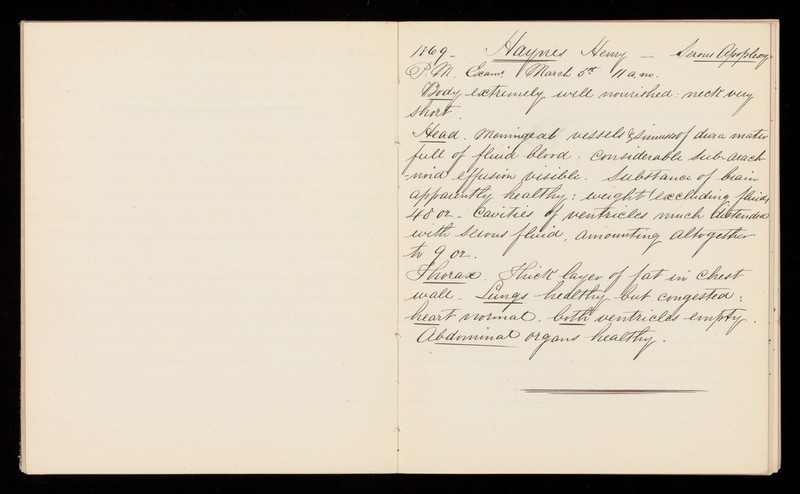 1869 - Haynes Henry - Serous Apoplexy.
P.M. Exam, March 5th 11 a.m.
Body extremely well nourished: neck very
short.
Head. Meningeal vessels & sinuses of dura mater
full of fluid blood: considerable sub-arach-
-noid effusion visible. Substance of brain
apparently healthy: weight (excluding fluid)
48 oz - Cavities of ventricles much distended
with serous fluid, amounting altogether
to 9 oz.
Thorax. Thick layer of fat in chest
wall. Lungs healthy but congested:
heart normal. both ventricles empty.
Abdominal organs healthy.